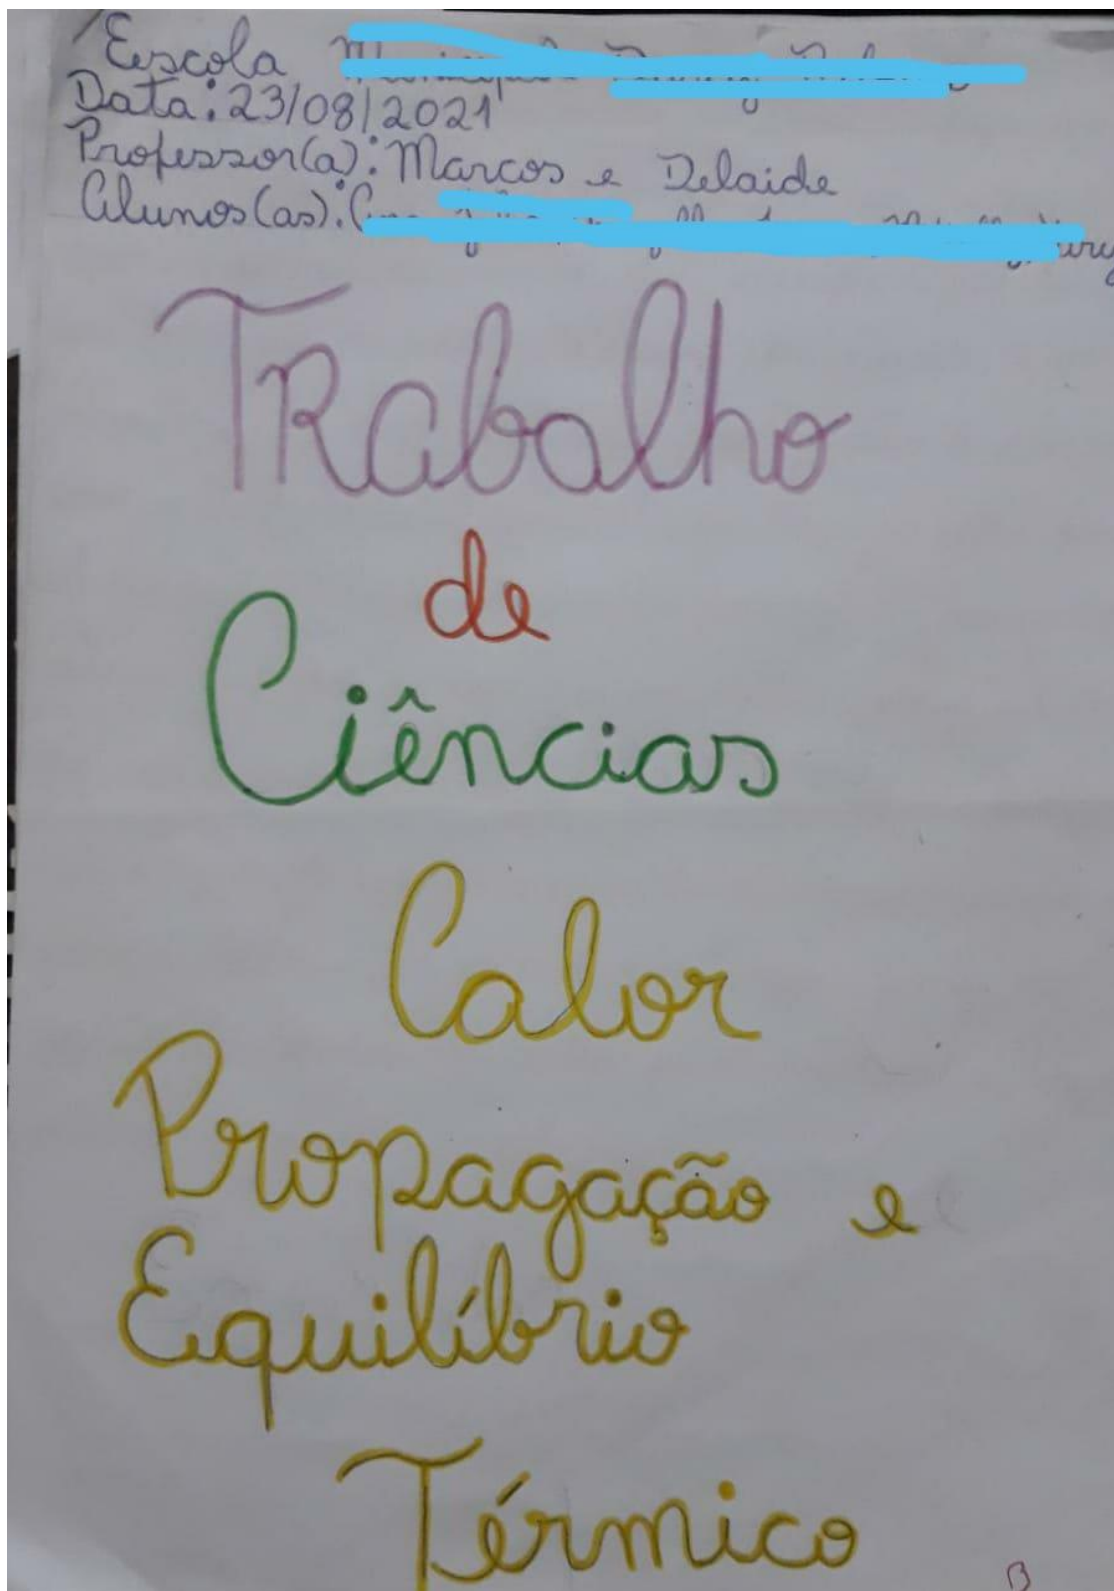 Escola
Data: 23/08/2021
Professor(a): Marcos e Delaide
Alunos(as):
TRabalho
de
Ciências
Calor
Propagação e
Equilíbrio
Térmico